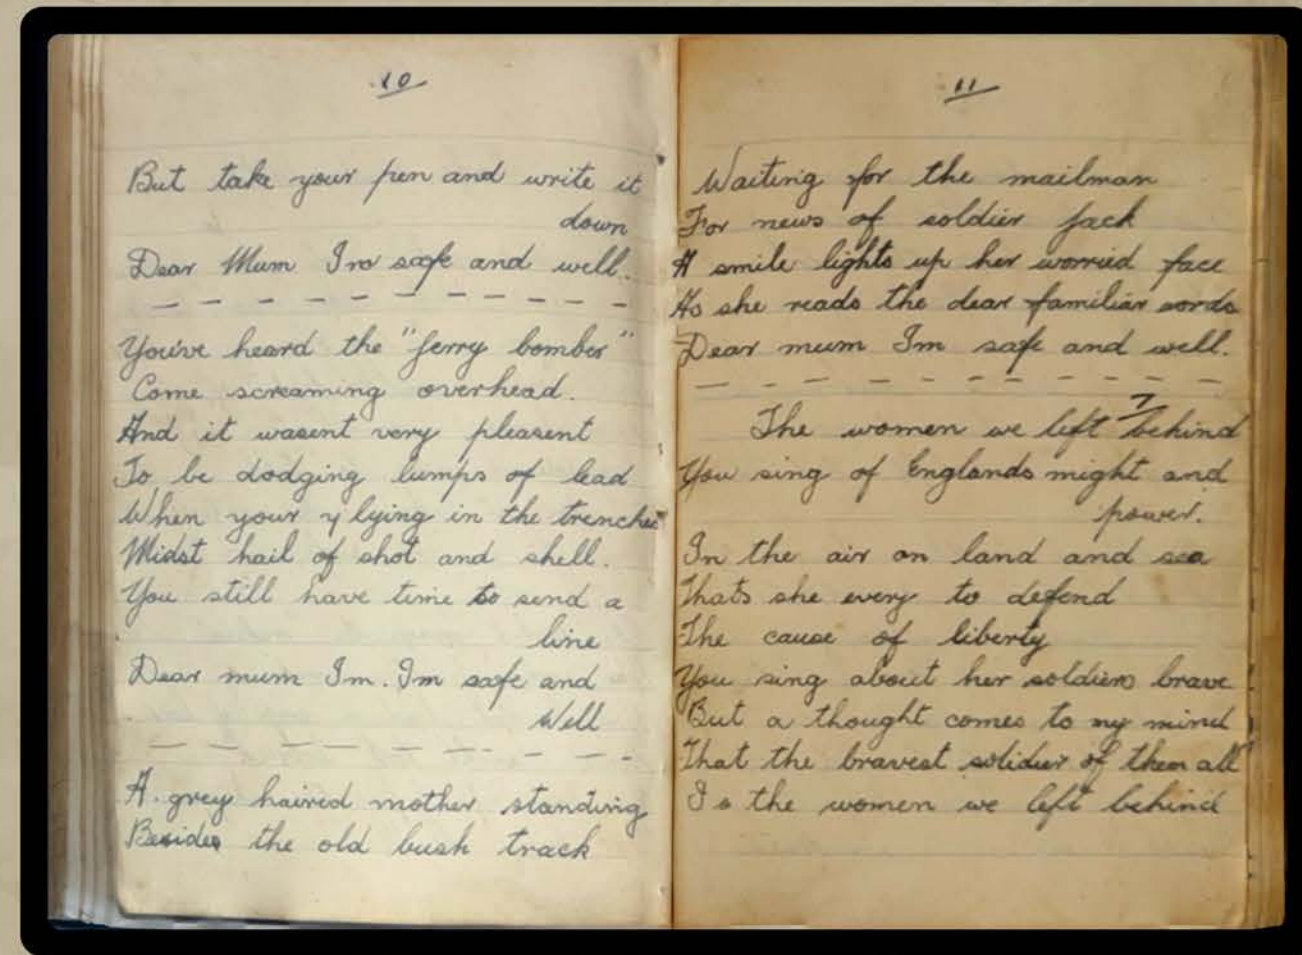 10
But take your pen and write it
down
Dear Mum Im safe and well.
You've heard the "Jerry bomber"
Come screaming overhead.
And it wasent very pleasent
To be dodging lumps of lead
When your lying in the trenches
Midst hail of shot and shell.
You still have time to send a
line
Dear mum Im. Im safe and
Well
A. grey haired mother standing
Besides the old bush track
11
Waiting for the mailman
For news of soldier Jack
A smile lights up her worried face
As she reads the dear familiar words
Dear mum Im safe and well.
7
The women we left behind
You sing of Englands might and
power.
In the air on land and sea
Thats she every to defend
The cause of liberty
You sing about her soldiers brave
But a thought comes to my mind
That the bravest solidier of them all
Is the women we left behind